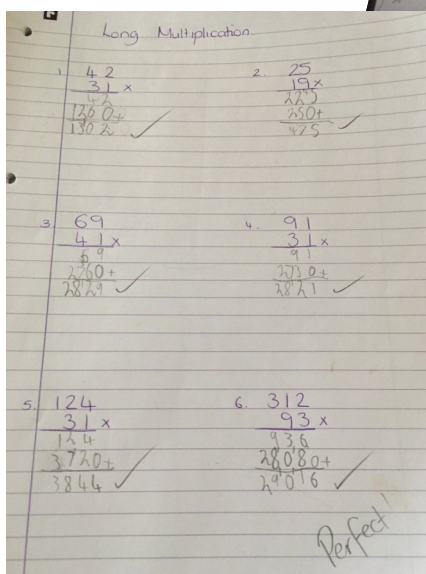 Long Multiplication
1. 42
31 x
42
1260+
1302 ✓
2. 25
19 x
225
250+
475 ✓
3. 69
41 x
69
2760+
2829 ✓
4. 91
31 x
91
2730+
2821 ✓
5. 124
31 x
124
3720+
3844 ✓
6. 312
93 x
936
28080+
29016 ✓
Perfect!